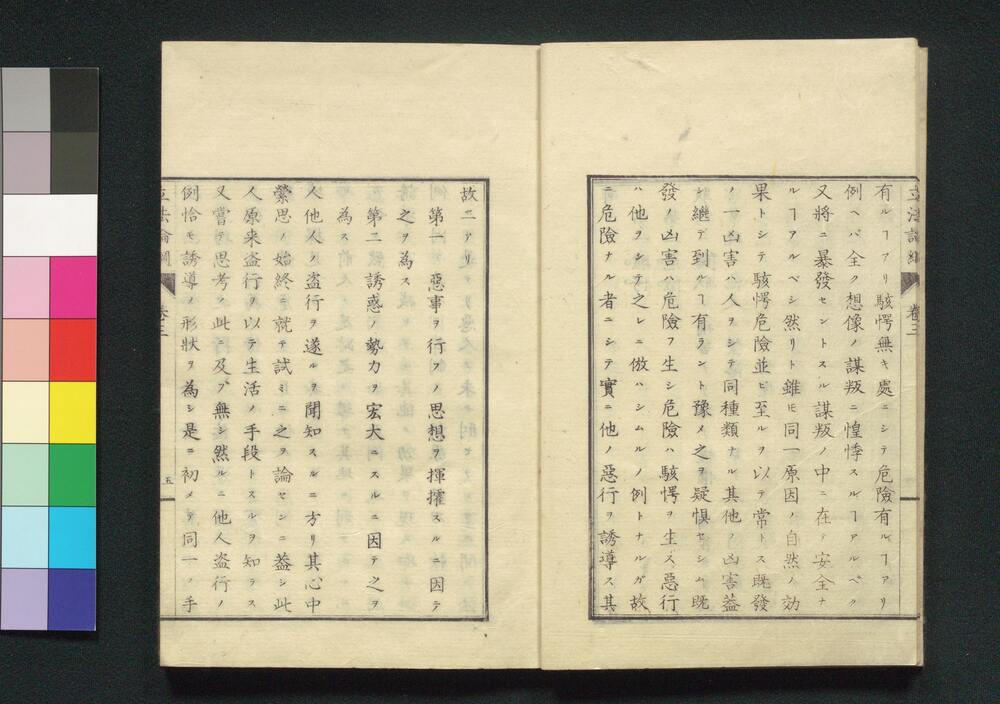 有ルヿアリ駭愕無キ處ニシテ危險有ルヿアリ
例ヘバ全ク想像ノ謀叛ニ惶悸スルヿアルベク
又將ニ暴發セントスル謀叛ノ中ニ在テ安全ナ
ルヿアルベシ然リト雖モ同一原因ノ自然ノ効
果トシテ駭愕危險並ビ至ルヲ以テ常トス既發
ノ一凶害ハ人ヲシテ同種類ナル其他ノ凶害蓋
シ繼デ到ルヿ有ラント豫メ之ヲ疑惧セシム既
發ノ凶害ハ危險ヲ生シ危險ハ駭愕ヲ生ス惡行
ハ他ヲシテ之レニ倣ハシムルノ例トナルガ故
ニ危險ナル者ニシテ實ニ他ノ惡行ヲ誘導ス其
立法論綱 卷三
故二アリ
第一惡事ヲ行フノ思想ヲ揮擢スルニ因テ
之ヲ為ス
第二誘惑ノ勢力ヲ宏大ニスルニ因テ之ヲ
為ス
人他人ノ盗行ヲ遂ルヲ聞知スルニ方リ其心中
縈思ノ始終ニ就テ試ミニ之ヲ論センニ蓋シ此
人原来盗行ヲ以テ生活ノ手段トスルヲ知ラス
又嘗テ思考ノ此ニ及ブ無シ然ルニ他人盗行ノ
例恰モ誘導ノ形狀ヲ為シ是ニ初メテ同一ノ手
立法論綱 卷三 五